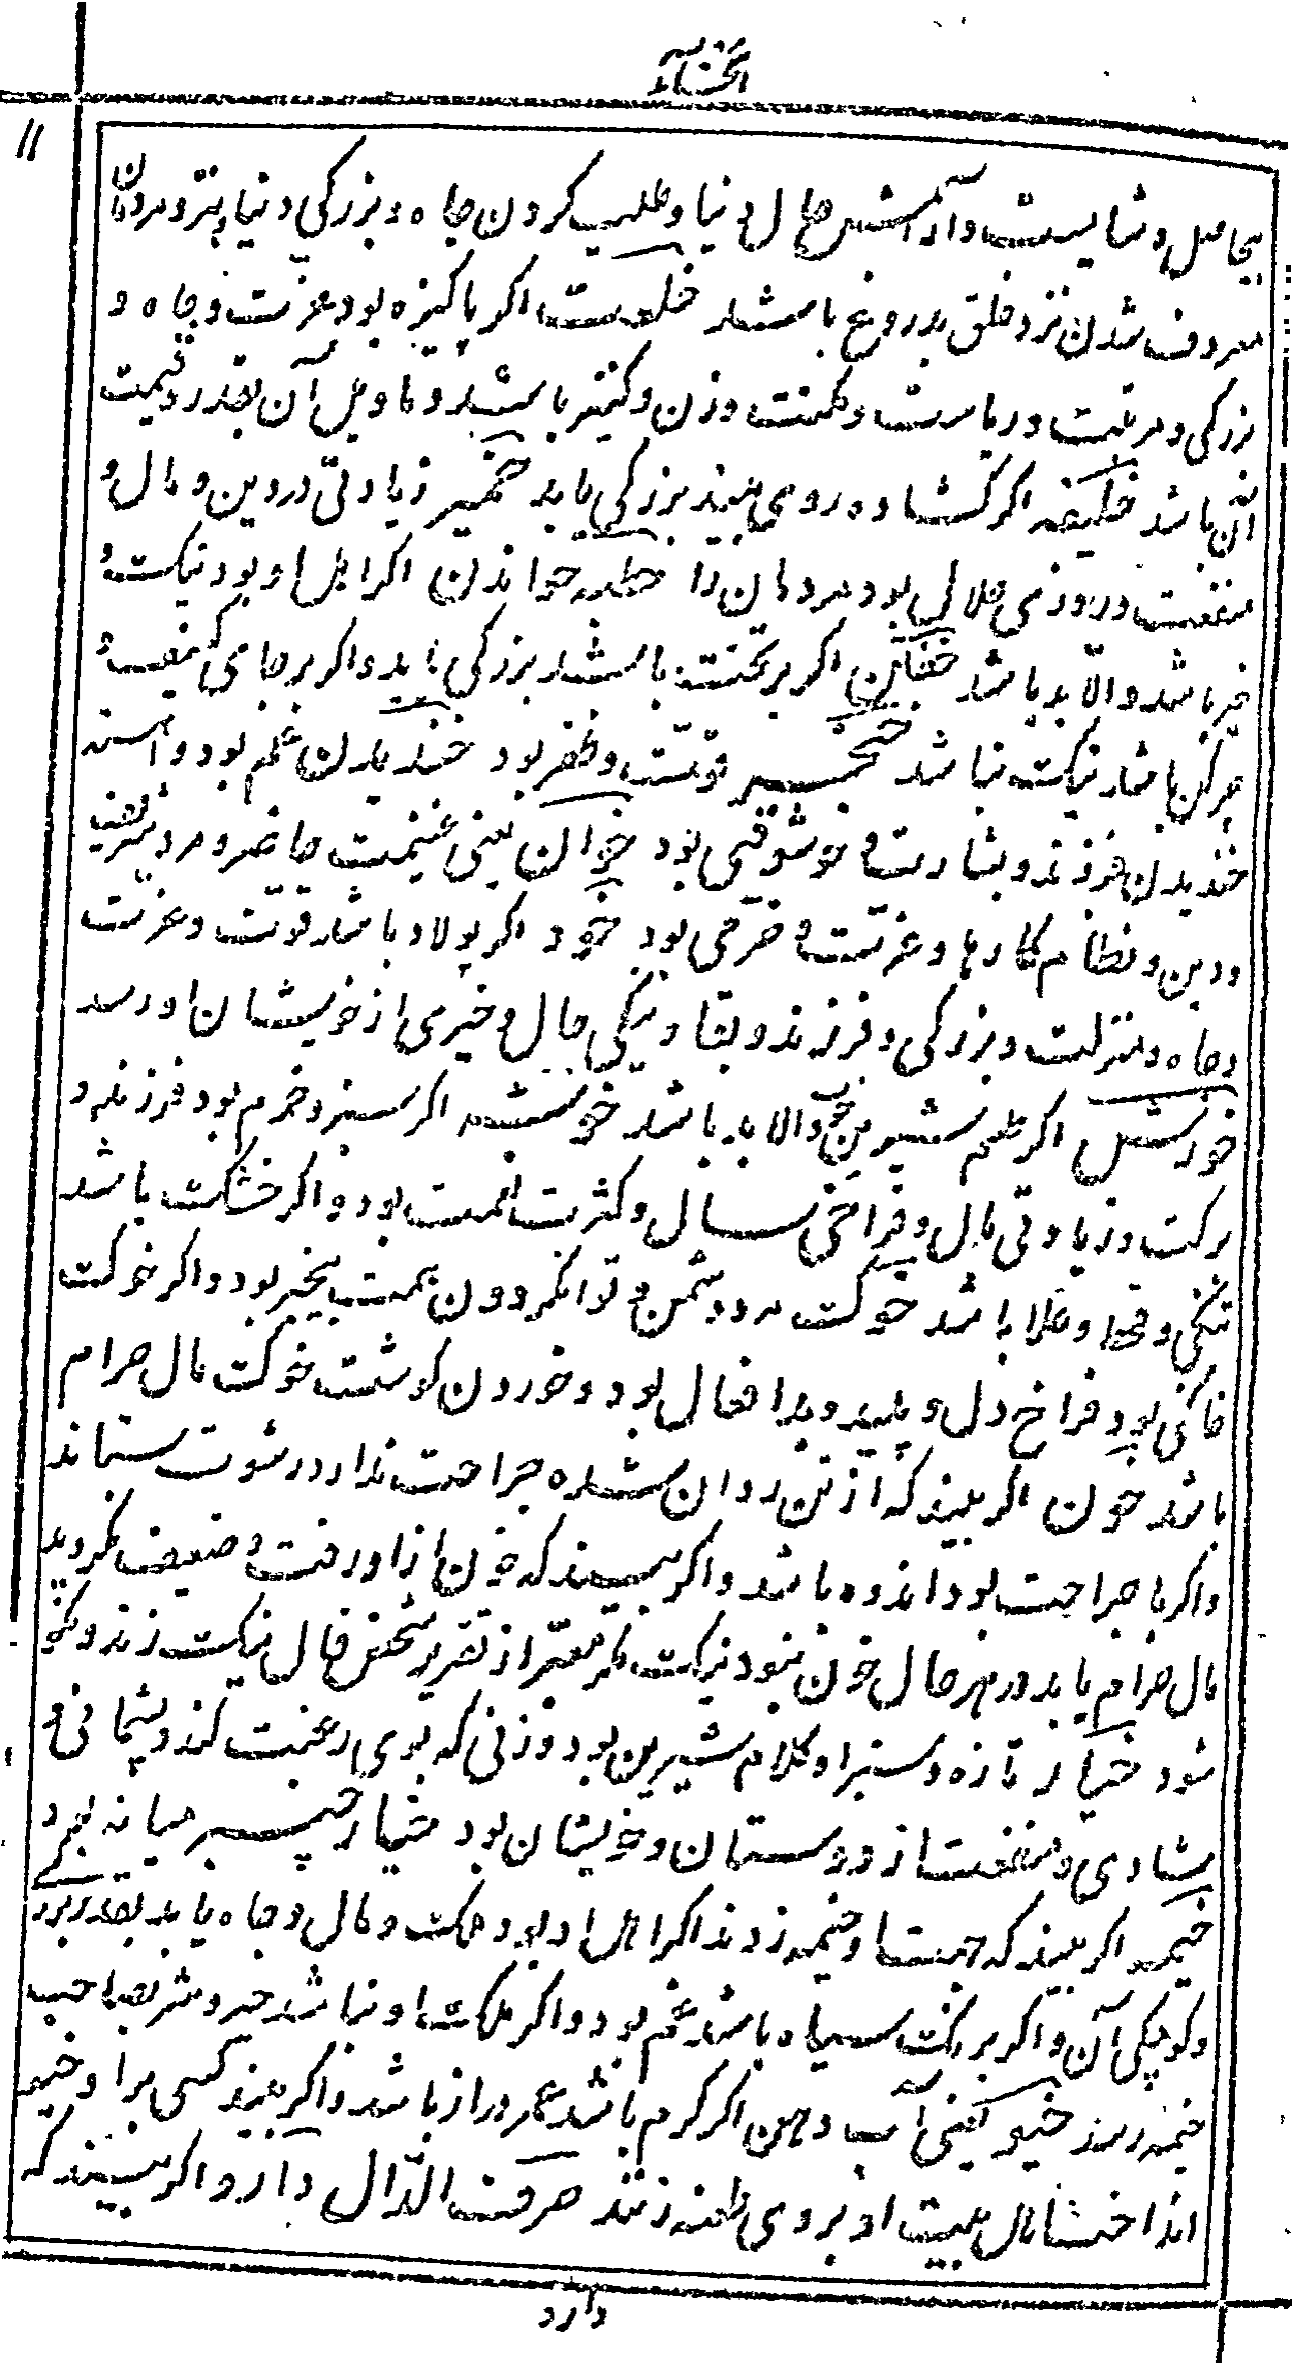 الخاء
۱۱
بیحاصل و شایست و آرامش حال دنیا و طلب کردن جاه و بزرکی دنیا و نزد مردمان
معروف شدن نزد خلق بدروغ باشد خلعت اکر پاکیزه بود عزت و جاه و
بزرکی و مرتبت و ریاست و مکنت و زن و کنیز باشد و تاویل آن بقدر و قیمت
آن باشد خلیفه اکر کشاده روی بیند بزرکی یابد خمیر زیادتی در دین و مال و
منفعت و روزی حلال بود مردمان را خطبه خواندن اکر اهل او بود نیکست و
خیر باشد و الا بد باشد خفتن اکر بر تخت باشد بزرکی یابد و اکر بر جای کثیف و
چرکن باشد نیکت نباشد خنجر قوت و ظفر بود خندیدن غم بود و آهسته
خندیدن فرزند و بشارت و خوشوقتی بود خوان یعنی غنیمت حاضر و مرد شریف
و دین و نظام کارها و عزت و خرمی بود خود اکر پولاد باشد قوت و عزت
و جاه و منزلت و بزرکی و فرزند و بقا و نیکی حال و خیری از خویشان او رسد
خورش اکر طعم شیرین و الا بد باشد خوشه اکر سبز و خرم بود فرزند و
برکت و زیادتی مال و فراخی سال و کثرت نعمت بود و اکر خشکت باشد
تنکی و قحط و غلا باشد خوکت مرد دشمن و توانکر و دون همت بیخیر بود و اکر خوکت
خانکی بود فراخ دل و پلید و بد افعال بود و خوردن کوشت خوکت مال حرام
باشد خون اکر بیند که از تن روان شده جراحت ندارد رشوت ستاند
و اکر با جراحت بود اندوه باشد و اکر بیند که خون از او رفت و ضعیف نکردید
مال حرام یابد در هر حال خون نبود نیکت مکر معبر از تقریر شخص فال نیکت زند و نکو
شود خیار تازه و سبز او کلام شیرین بود و زنی که بوی رغبت کند و پشیمانی و
شادی و منفعت از دوستان و خویشان بود خیار چنبر میانه بود
خیمه اکر بیند که جهت او خیمه زدند اکر اهل او بود ملکت و مال و جاه یابد بقدر بزرکی
و کوچکی آن و اکر برنکت سیاه باشد غم بود و اکر ملکت او نباشد خیر و شر بصاحب
خیمه رسد خیو یعنی آب دهن اکر کرم باشد عمر دراز باشد و اکر بیند کسی بر او خیو
انداخت اهل بیت او بروی طعنه زنند حرف الدال دار و اکر بیند که
دارد